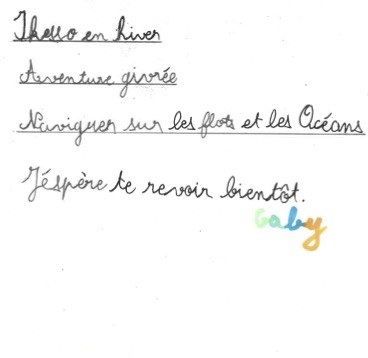 Thello en hiver
Aventure givrée
Naviguer sur les flots et les Océans
J'éspère te revoir bientôt.
Gaby